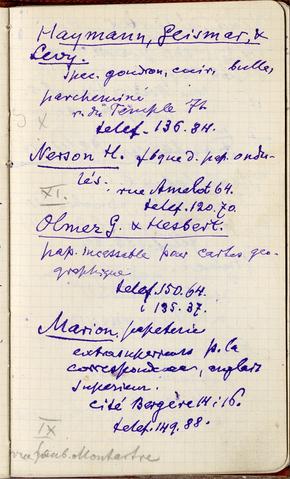 Haymann, Geismar, &
Levy.
Spéc. goudron, cuir, bulle,
parcheminé
r. du Temple 71
telef. 136.84.
X
Nerson H. fbque d. pap. ondu-
lés.
rue Amelot 64.
XI.
telef. 120.70.
Olmer G. & Hesbert.
pap. incassable pour cartes geo-
graphique
telef. 150.64.
i 125.37.
Marion. papeterie
extrasuperieurs p. la
correspondance, anglais
superieur.
cité Bergère 14 i 16.
telef. 149.88.
IX
rue Faub. Montartre